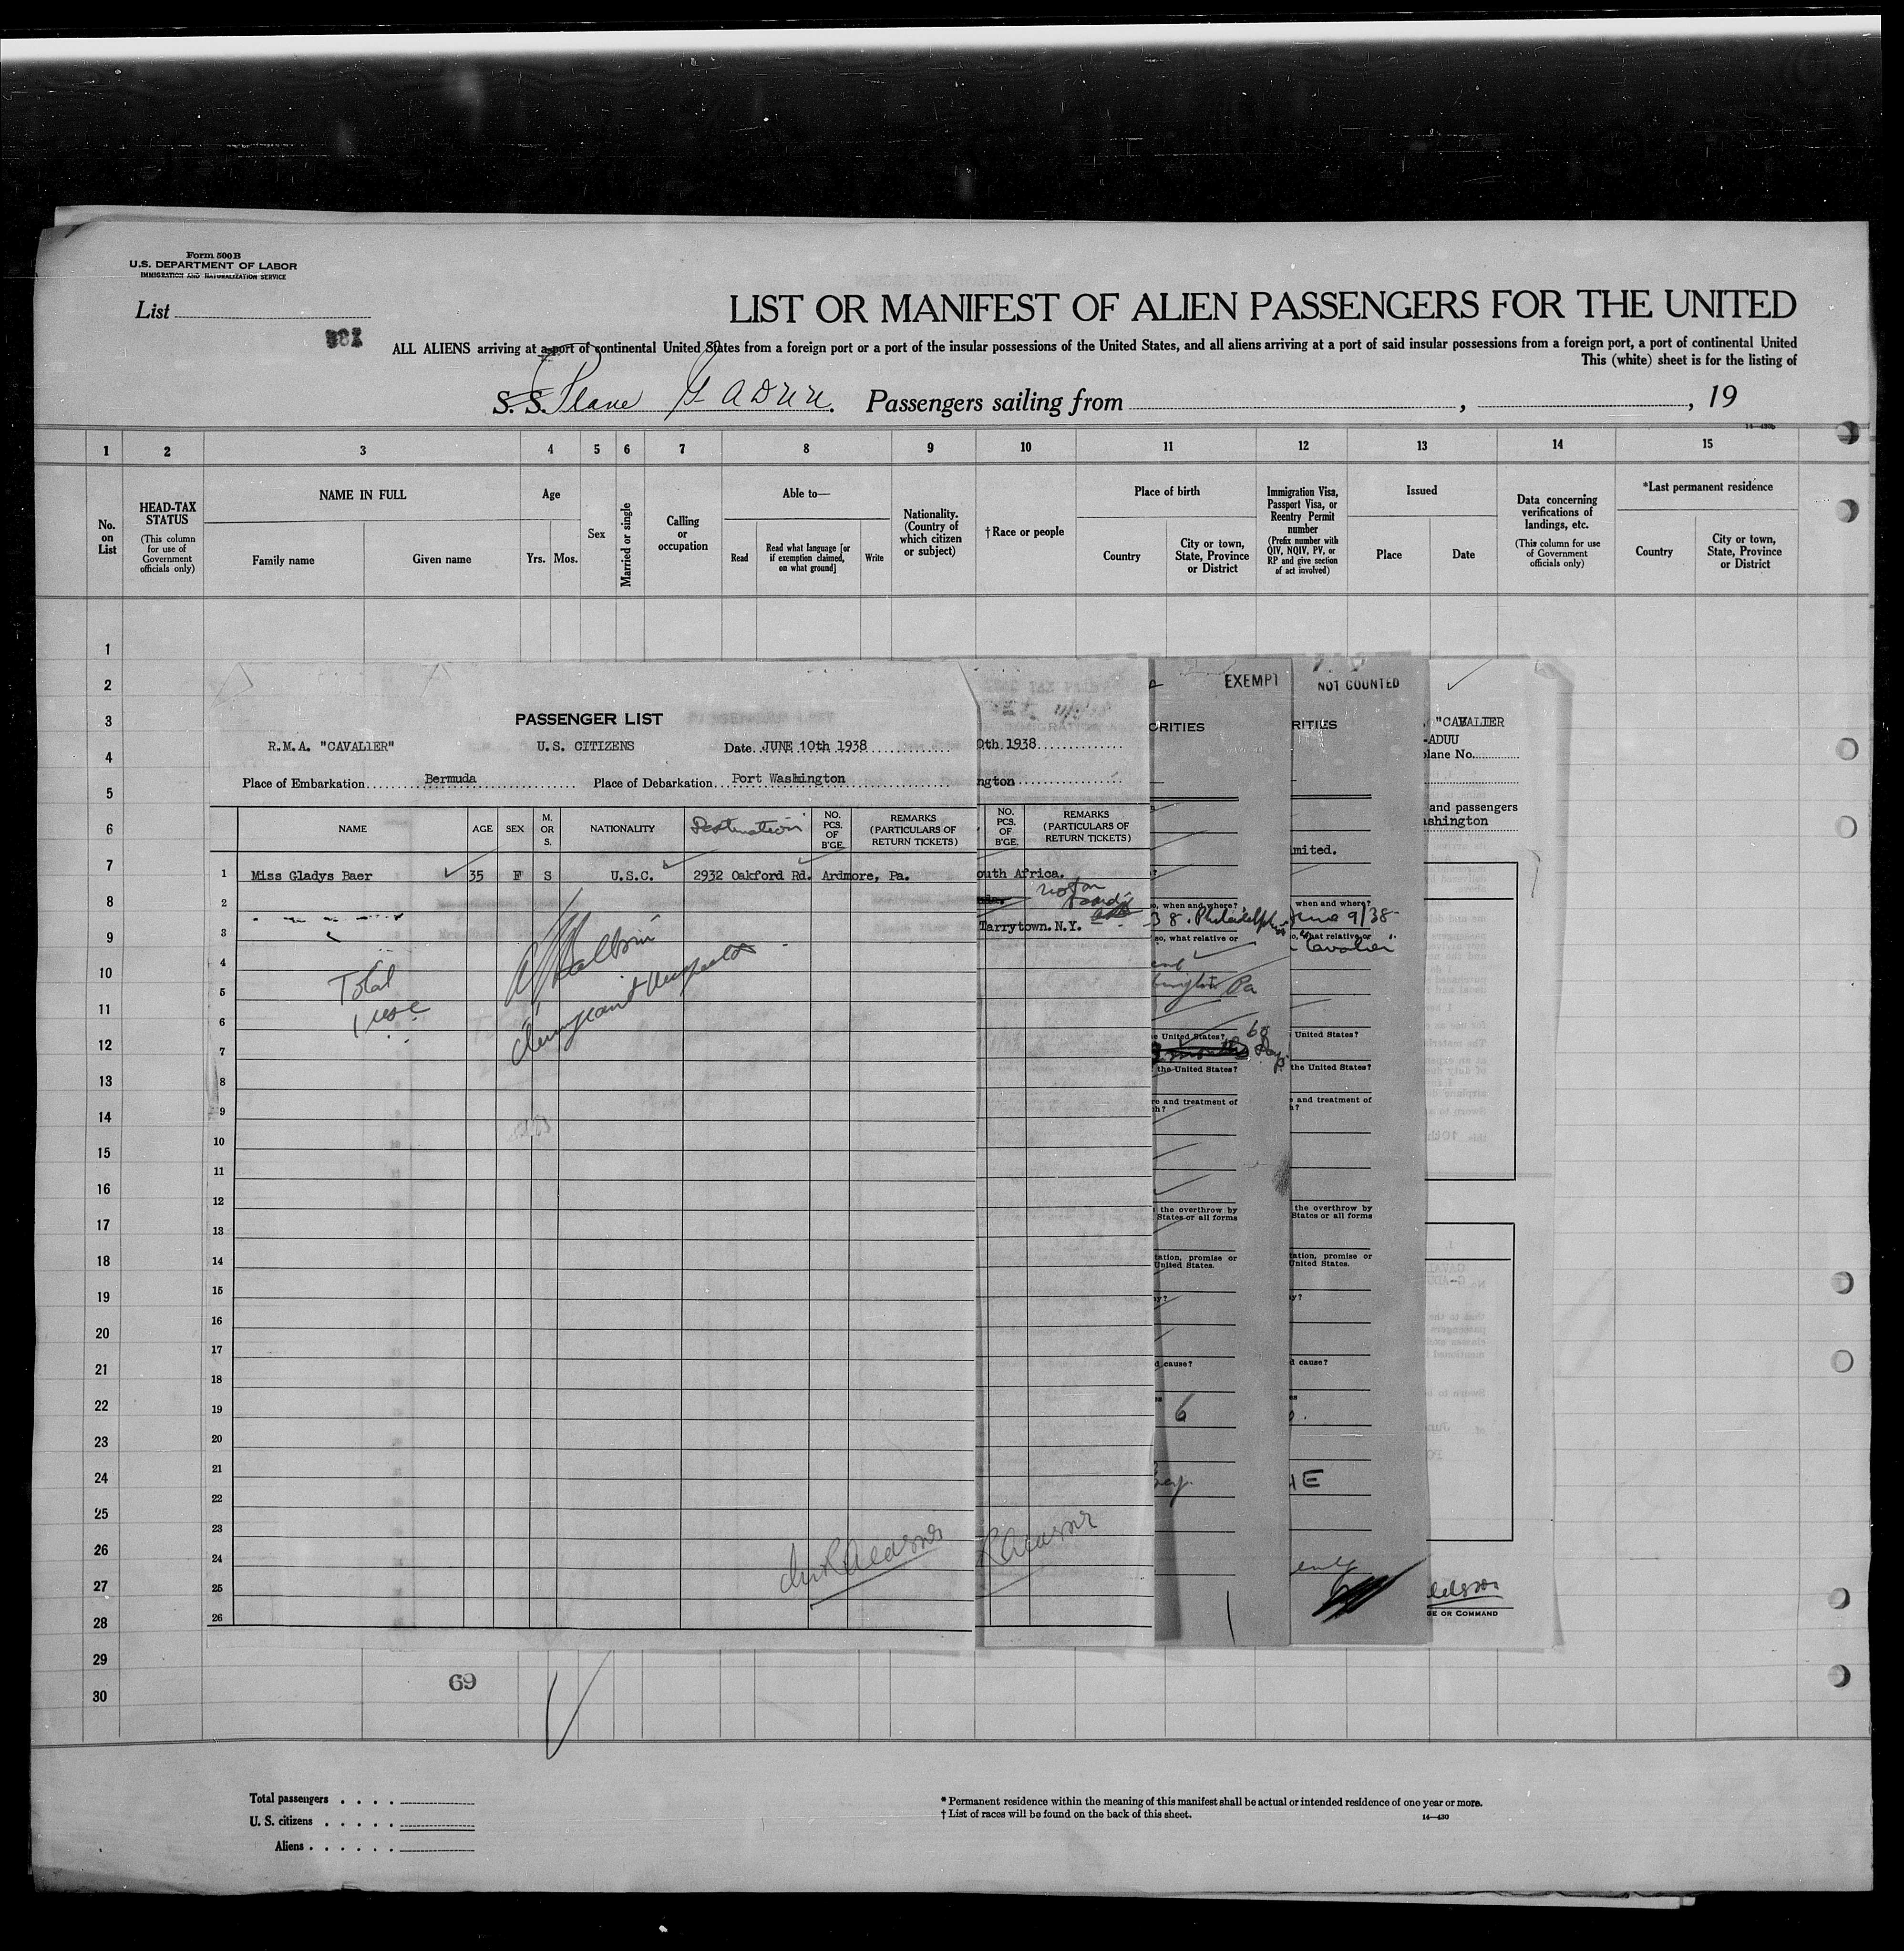 Form 500B
U.S. DEPARTMENT OF LABOR
IMMIGRATION AND NATURALIZATION SERVICE
List
LIST OR MANIFEST OF ALIEN PASSENGERS FOR THE UNITED
ALL ALIENS arriving at a port of continental United States from a foreign port or a port of the insular possessions of the United States, and all aliens arriving at a port of said insular possessions from a foreign port, a port of continental United
This (white) sheet is for the listing of
S. S. Plane G ADUU. Passengers sailing from , , 19
14-430b
1 2 3 4 5 6 7 8 9 10 11 12 13 14 15
No. on List
HEAD-TAX STATUS
(This column for use of Government officials only)
NAME IN FULL
Family name Given name
Age
Yrs. Mos.
Sex
Married or single
Calling or occupation
Able to—
Read
Read what language [or if exemption claimed, on what ground]
Write
Nationality. (Country of which citizen or subject)
†Race or people
Place of birth
Country
City or town, State, Province or District
Immigration Visa, Passport Visa, or Reentry Permit number
(Prefix number with QIV, NQIV, PV, or RP and give section of act involved)
Issued
Place Date
Data concerning verifications of landings, etc.
(This column for use of Government officials only)
*Last permanent residence
Country
City or town, State, Province or District
1
2
3
4
5
6
7
8
9
10
11
12
13
14
15
16
17
18
19
20
21
22
23
24
25
26
27
28
29
30
PASSENGER LIST
R.M.A. "CAVALIER" U.S. CITIZENS Date JUNE 10th 1938
Place of Embarkation Bermuda Place of Debarkation Port Washington
NAME AGE SEX M. OR S. NATIONALITY Destination NO. PCS. OF B'GE. REMARKS (PARTICULARS OF RETURN TICKETS)
1 Miss Gladys Baer 35 F S U.S.C. 2932 Oakford Rd. Ardmore, Pa.
2
3
4
5
6
7
8
9
10
11
12
13
14
15
16
17
18
19
20
21
22
23
24
25
26
Total
1 usc
0th 1938
ngton
NO. PCS. OF B'GE.
REMARKS (PARTICULARS OF RETURN TICKETS)
outh Africa.
not on board
Tarrytown. N.Y.
EXEMPT
ORITIES
, when and where?
38. Philadelphia
so, what relative or
Pa
e United States?
60 days
the United States?
re and treatment of
the overthrow by
States or all forms
tation, promise or
United States.
y?
d cause?
6
NOT COUNTED
RITIES
mited.
when and where?
June 9/38
o, what relative or
"Cavalier"
United States?
the United States?
and treatment of
h?
the overthrow by
States or all forms
tation, promise or
United States.
y?
d cause?
HE
"CAVALIER
-ADUU
plane No.
and passengers
ashington
GE OR COMMAND
69
Total passengers
U. S. citizens
Aliens
* Permanent residence within the meaning of this manifest shall be actual or intended residence of one year or more.
† List of races will be found on the back of this sheet.
14—430